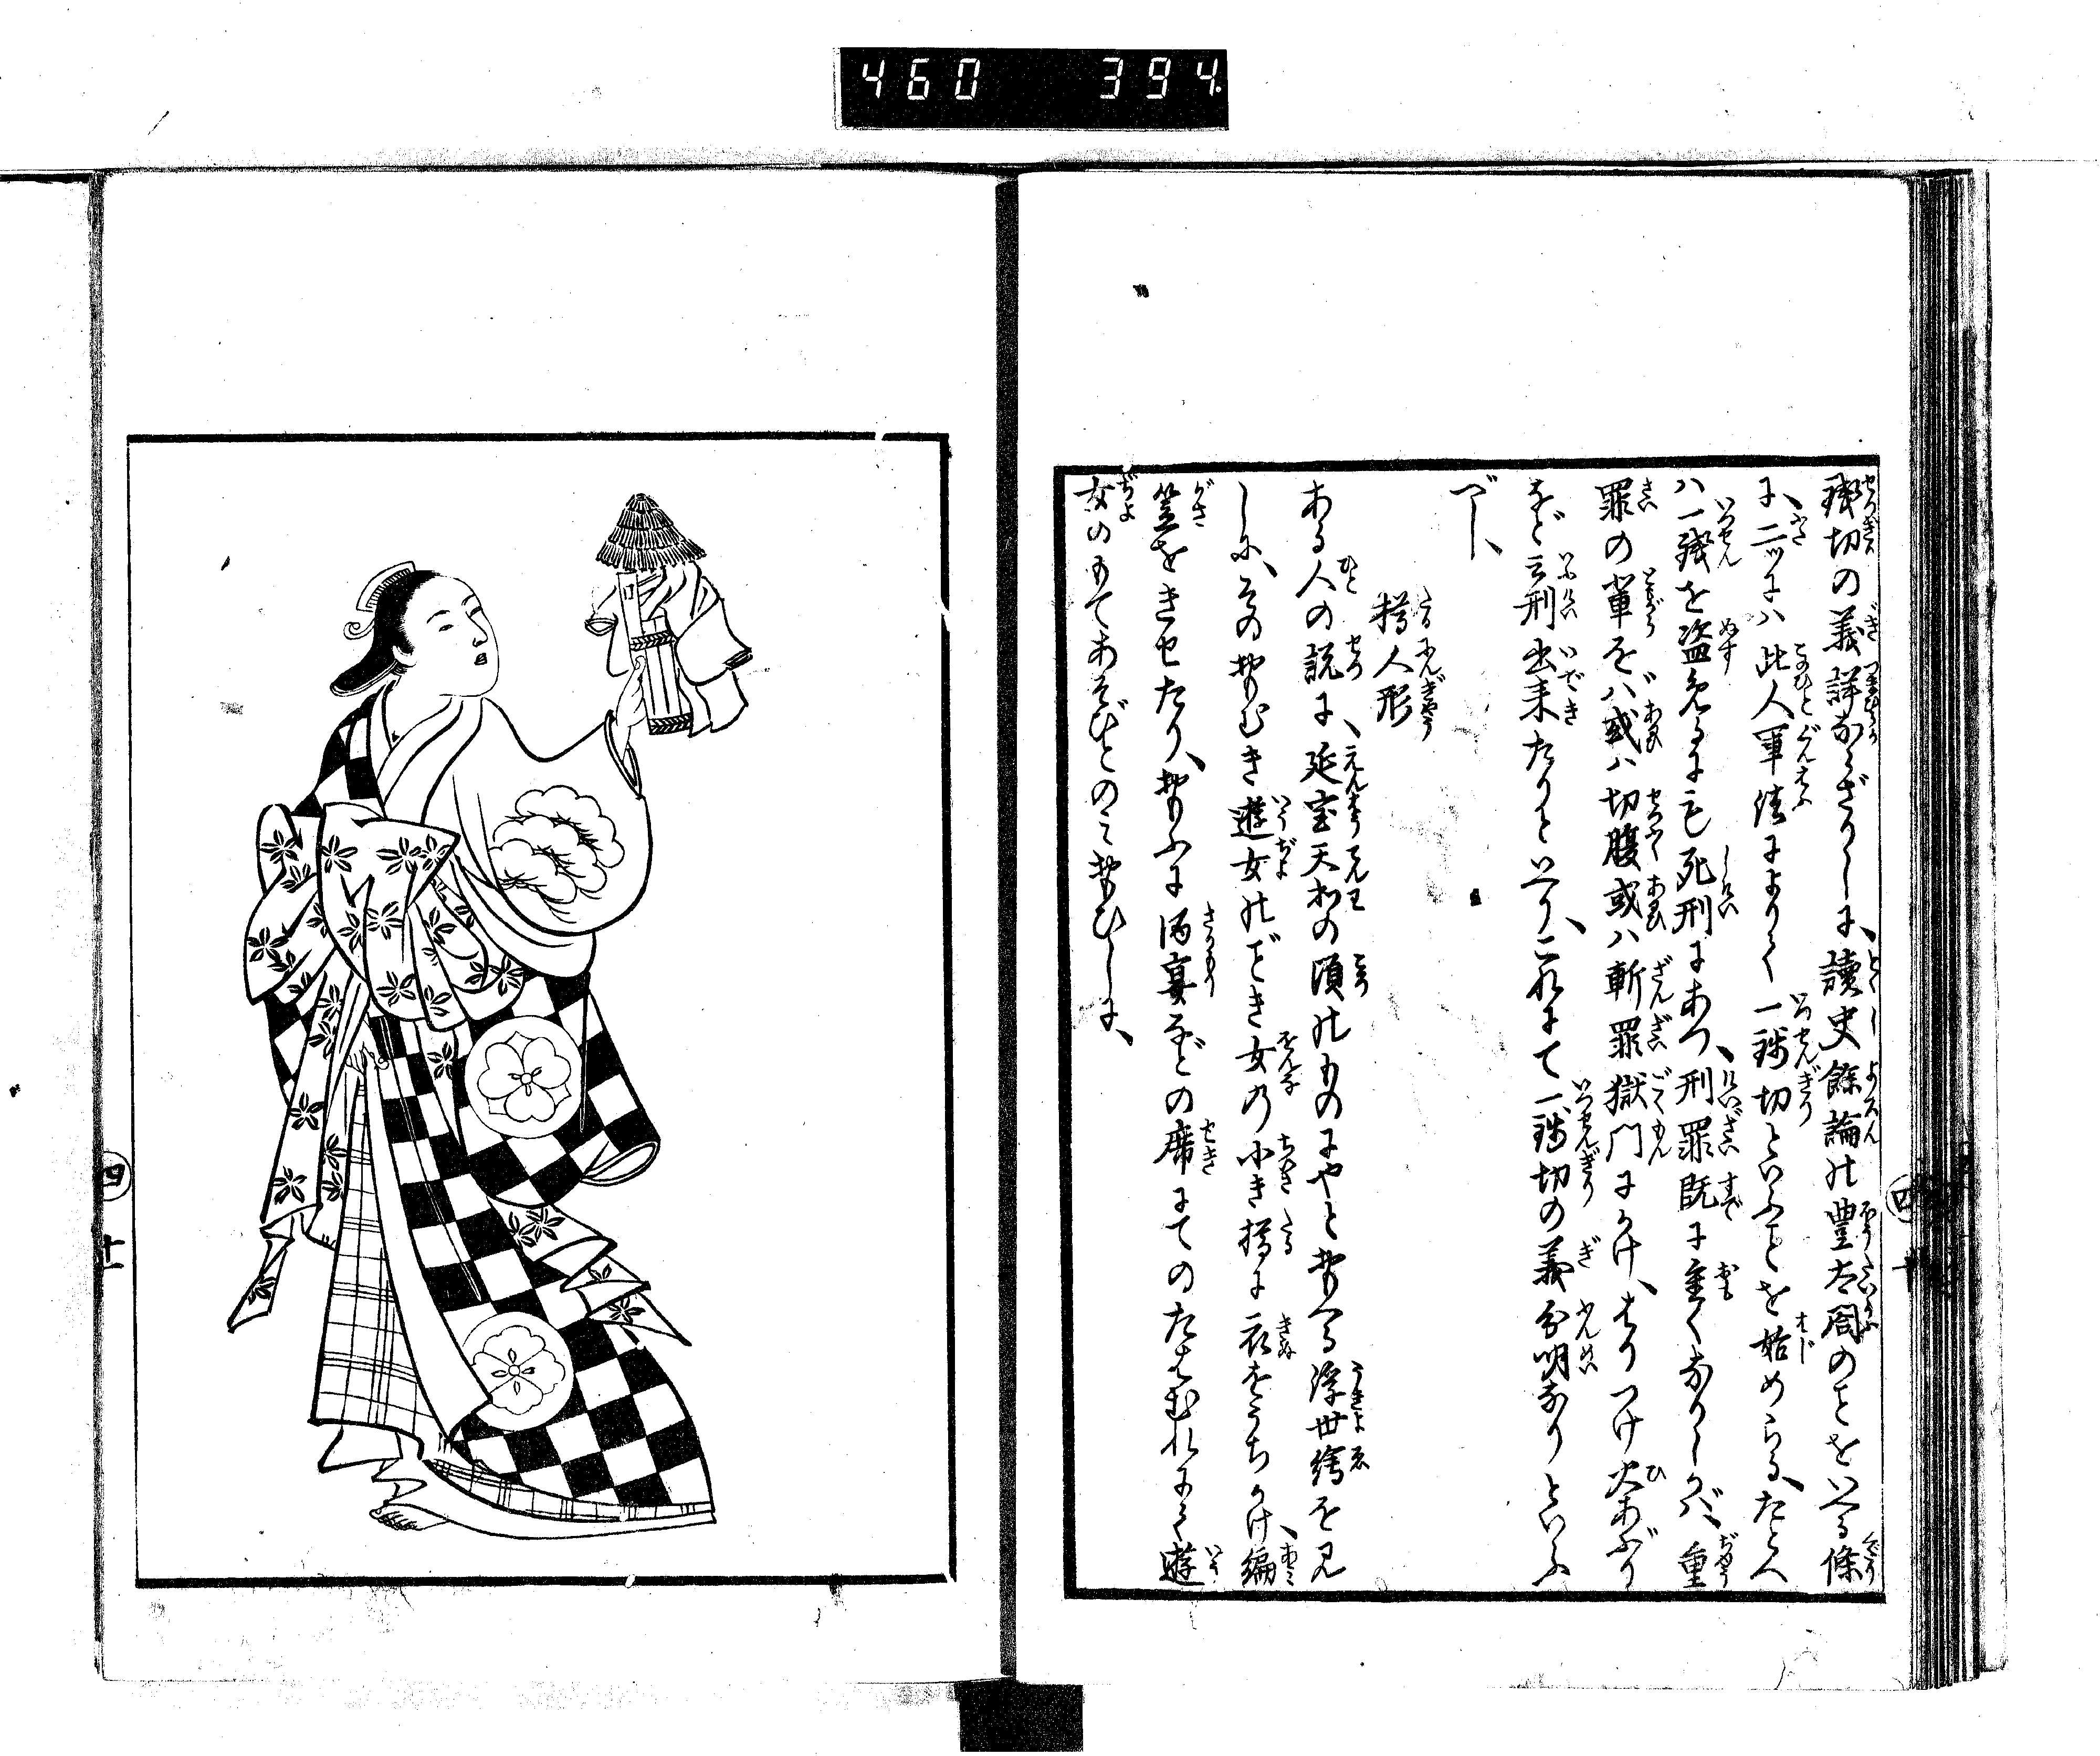 460 394
銭切の義詳ならざりしに、讀史餘論の豊太閤のことをいへる條
に、二ツには此人軍法によりて一銭切といふことを始めらる、たとへ
ハ一銭を盗めるにも死刑にあつ、刑罪既に重くなりしかバ、重
罪の輩をバ或ハ切腹或ハ斬罪獄門にかけ、はりつけ火あぶり
など云刑出来たりといへり、これにて一銭切の義分明なりといふ
べし、
樽人形
ある人の説に、延宝天和の頃のものにやと おもへる浮世繪を見
しに、そのおもむき遊女のごとき女の小き樽に衣をうちかけ、編
笠をきせたり、おもふに酒宴などの席にてのたはむれにて遊
女のもてあそびとのみおもひしに、
四
十一
四
十